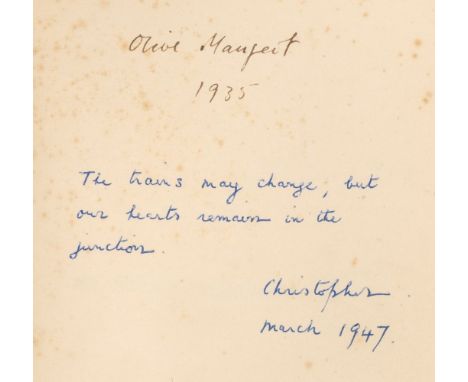 Olive Mangeot
1935
The trains may change, but
our hearts remain in the
junction.
Christopher
March 1947.